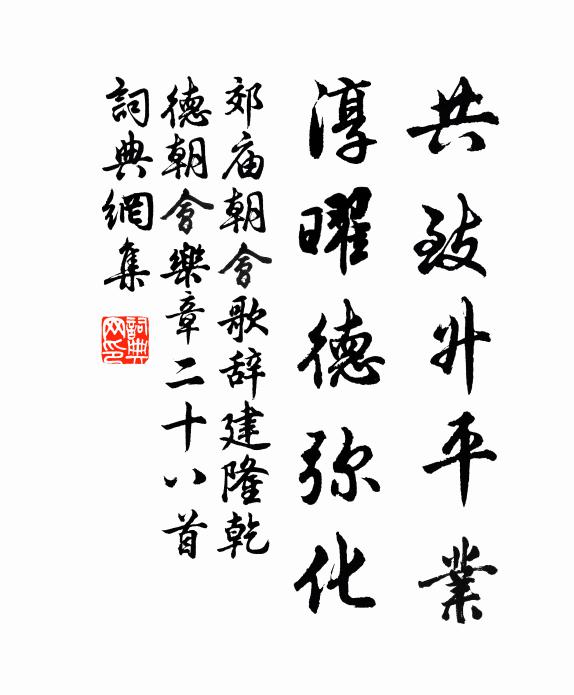 共致升平業
淳曜德弥化
郊庙朝會歌辞建隆乾
德朝會樂章二十八首
詞典網集
詞典网印